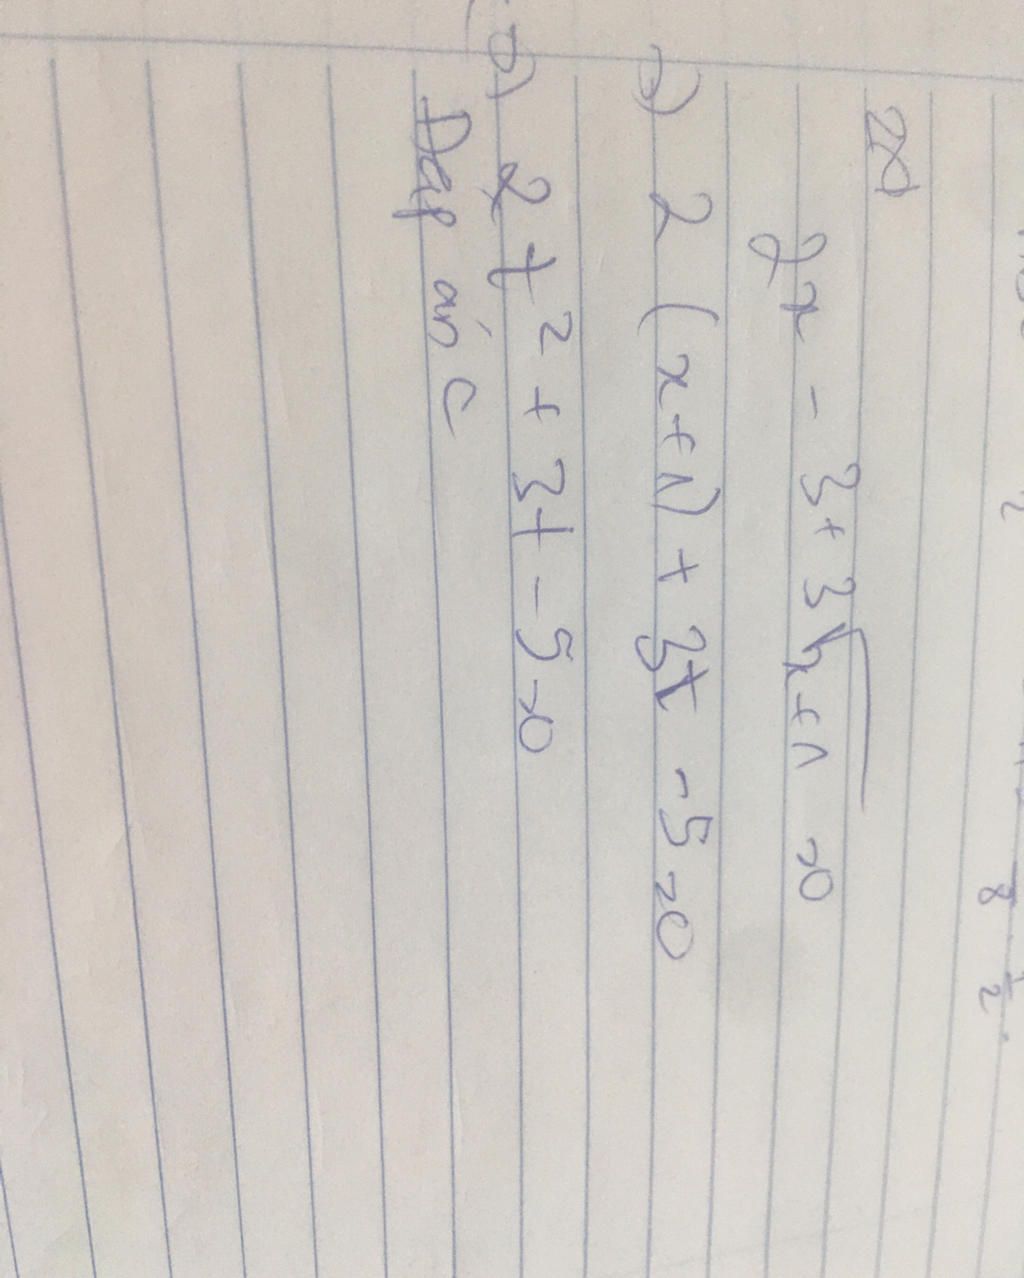 2x - 3 + 3√x+1 = 0
=) 2 (x+1) + 3t - 5 = 0
=) 2t² + 3t - 5 = 0
Đáp án C